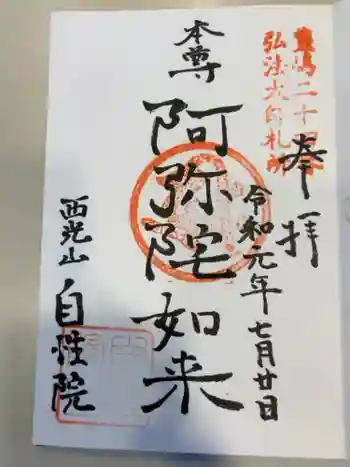 弘法大師札所
奉拝
令和元年七月廿日
本尊
阿弥陀如来
西光山
自性院